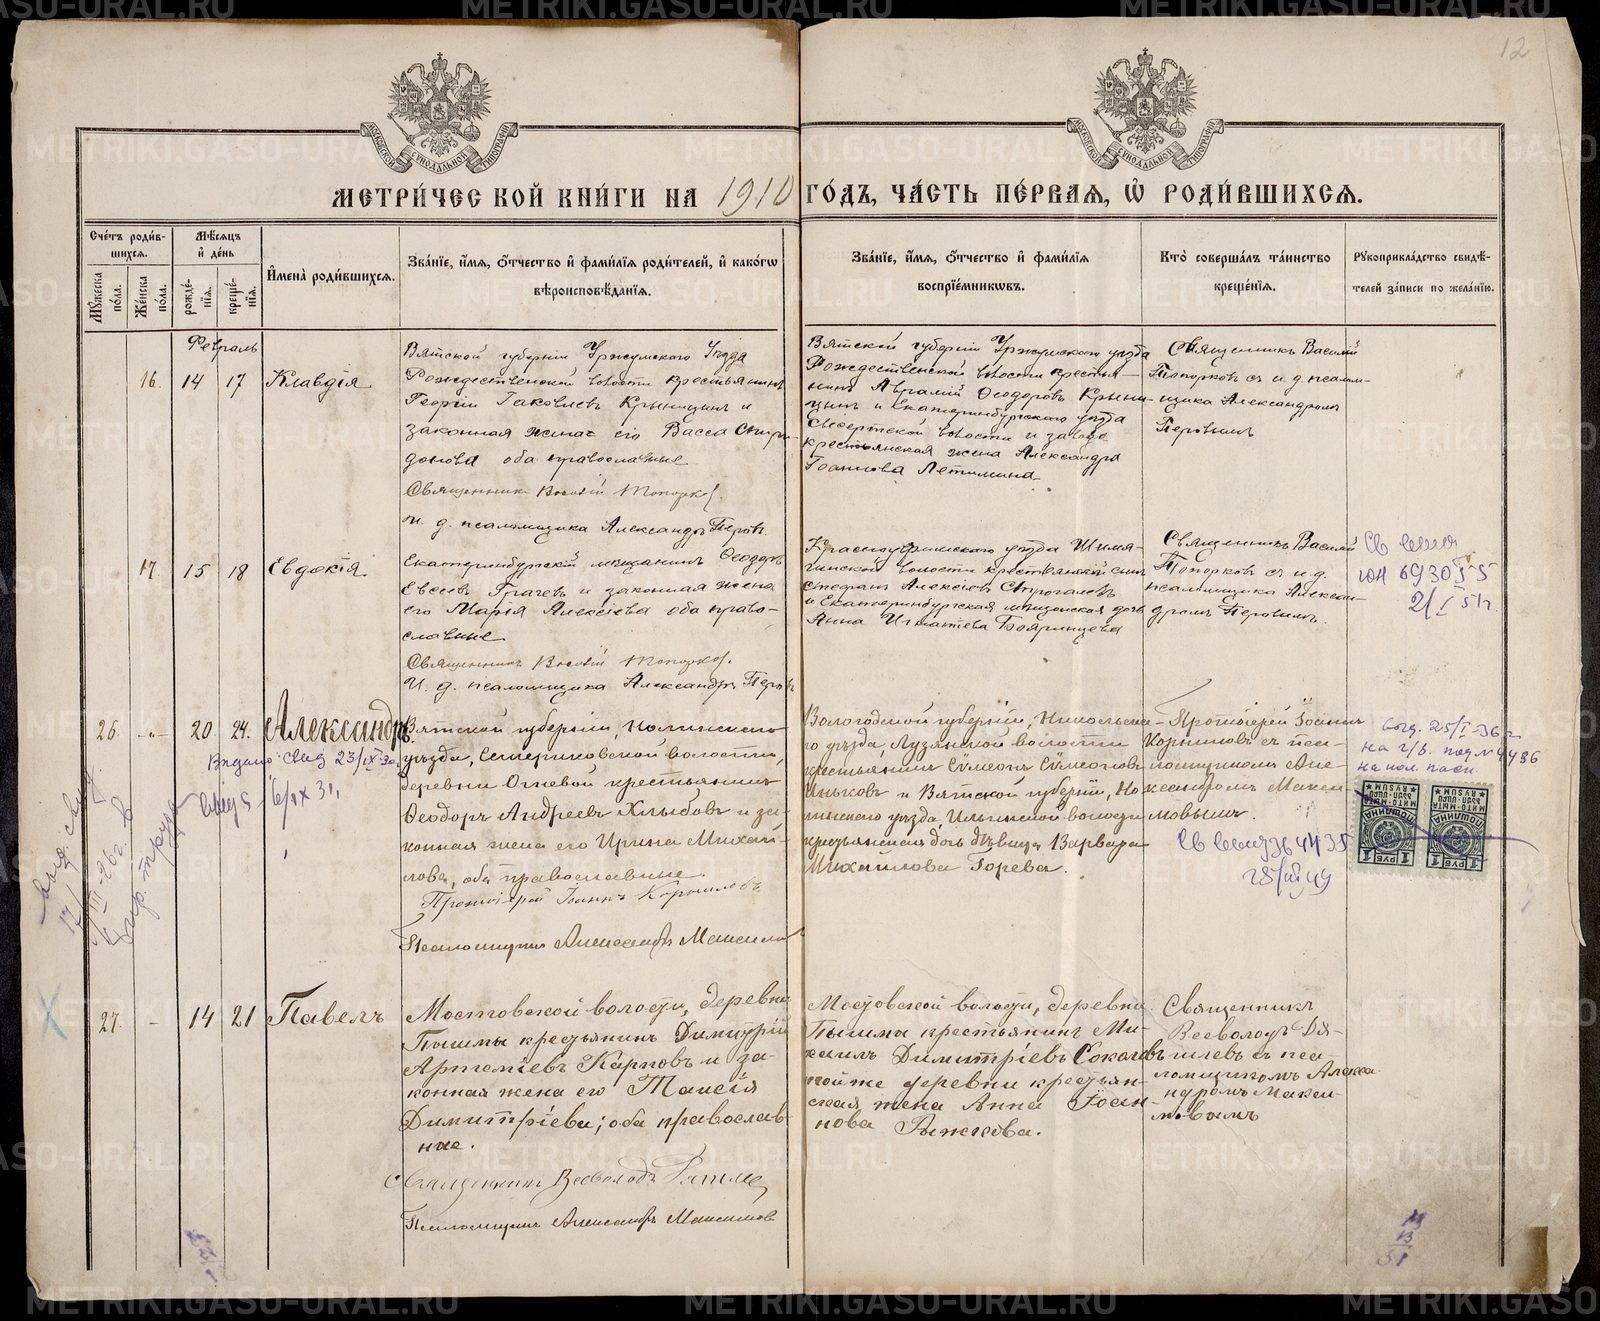 12
МОСКОВСКОЙ СѴНОДАЛЬНОЙ ТИПОГРАФІИ
МОСКОВСКОЙ СѴНОДАЛЬНОЙ ТИПОГРАФІИ
МЕТРИ́ЧЕСКОЙ КНИ́ГИ НА 1910 ГО́ДЪ, ЧА́СТЬ ПЕ́РВАѦ, Ѡ҆ РОДИ́ВШИХСѦ.
Сче́тъ роди́в-
шихсѧ.
Мꙋ́жеска по́ла.
Же́нска по́ла.
Мѣ́сѧцъ и҆ де́нь
рожде́-
нїѧ.
креще́-
нїѧ.
И҆мена̀ роди́вшихсѧ.
Зва́нїе, и҆́мѧ, ѻ҆́тчество и҆ фами́лїѧ роди́телей, и҆ како́гѡ
вѣроисповѣ́данїѧ.
Зва́нїе, и҆́мѧ, ѻ҆́тчество и҆ фами́лїѧ
воспрїе́мникѡвъ.
Кто̀ соверша́лъ та́инство
креще́нїѧ.
Рꙋкоприкла́дство свидѣ́-
телей за́писи по жела́нїю.
Февраль
16. 14 17 Клавдія
Вятской губерніи Уржумского Уѣзда
Рождественской волости крестьянинъ
Георгій Іаковлевъ Крыницынъ и
законная жена его Васса Спири-
донова оба православные
Священникъ Василій Топорковъ.
И. д. псаломщика Александръ Перовъ
Вятской губерніи Уржумскаго уѣзда
Рождественской волости крестья-
нинъ Аврамій Ѳеодоровъ Крыни-
цынъ и Екатеринбургскаго уѣзда
Сысертской волости и завода
крестьянская жена Александра
Іоаннова Летемина
Священникъ Василій
Топорковъ съ и. д. псалом-
щика Александромъ
Перовымъ
17. 15 18 Евдокія
Екатеринбургскій мѣщанинъ Ѳеодоръ
Евсеевъ Грачевъ и законная жена
его Марія Алексіева оба право-
славные
Священникъ Василій Топорковъ.
И. д. псаломщика Александръ Перовъ
Красноуфимскаго уѣзда
волости крестьянскій сынъ
Стефанъ Алексіевъ Строгалевъ
и Екатеринбургская мѣщанская дочь
Анна Игнатіева Бояринцева
Священникъ Василій
Топорковъ съ и. д.
псаломщика Алексан-
дромъ Перовымъ.
26. -„- 20. 24. Александръ.
23/IX 3
6/IX 31
Вятской губерніи, Нолинскаго
уѣзда, волости,
деревни Огневой крестьянинъ
Ѳеодоръ Андреевъ Хлыбовъ и за-
конная жена его Ирина Михаи-
лова, оба православные.
Протоіерей Іоаннъ Корниловъ
Псаломщикъ Александръ Максимовъ
Вологодской губерніи, Никольска-
го уѣзда, Лузянской волости
крестьянинъ Сѵмеонъ Сѵмеоновъ
Иньковъ и Вятской губерніи, Но-
линскаго уѣзда, волости
крестьянская дочь дѣвица Варвара
Михаилова Горева.
Протоіерей Іоаннъ
Корниловъ съ пса-
ломщикомъ Але-
ксандромъ Макси-
мовымъ.
выд. 25/I-36 г
4486
ПОШЛИНА
1 РУБ
ПОШЛИНА
1 РУБ
27. - 14 21 Павелъ
Мостовской волости, деревни
Пышмы крестьянинъ Димитрій
Артеміевъ Карповъ и за-
конная жена его Таисія
Димитріева; оба православ-
ные.
Священникъ Всеволодъ
Псаломщикъ Александръ Максимовъ
Мостовской волости, деревни
Пышмы крестьянинъ Ми-
хаилъ Димитріевъ Соколовъ
той же деревни крестьян-
ская жена Анна Іоан-
нова Рыжкова.
Священникъ
Всеволодъ
съ пса-
ломщикомъ Алекса-
ндромъ Макси-
мовымъ